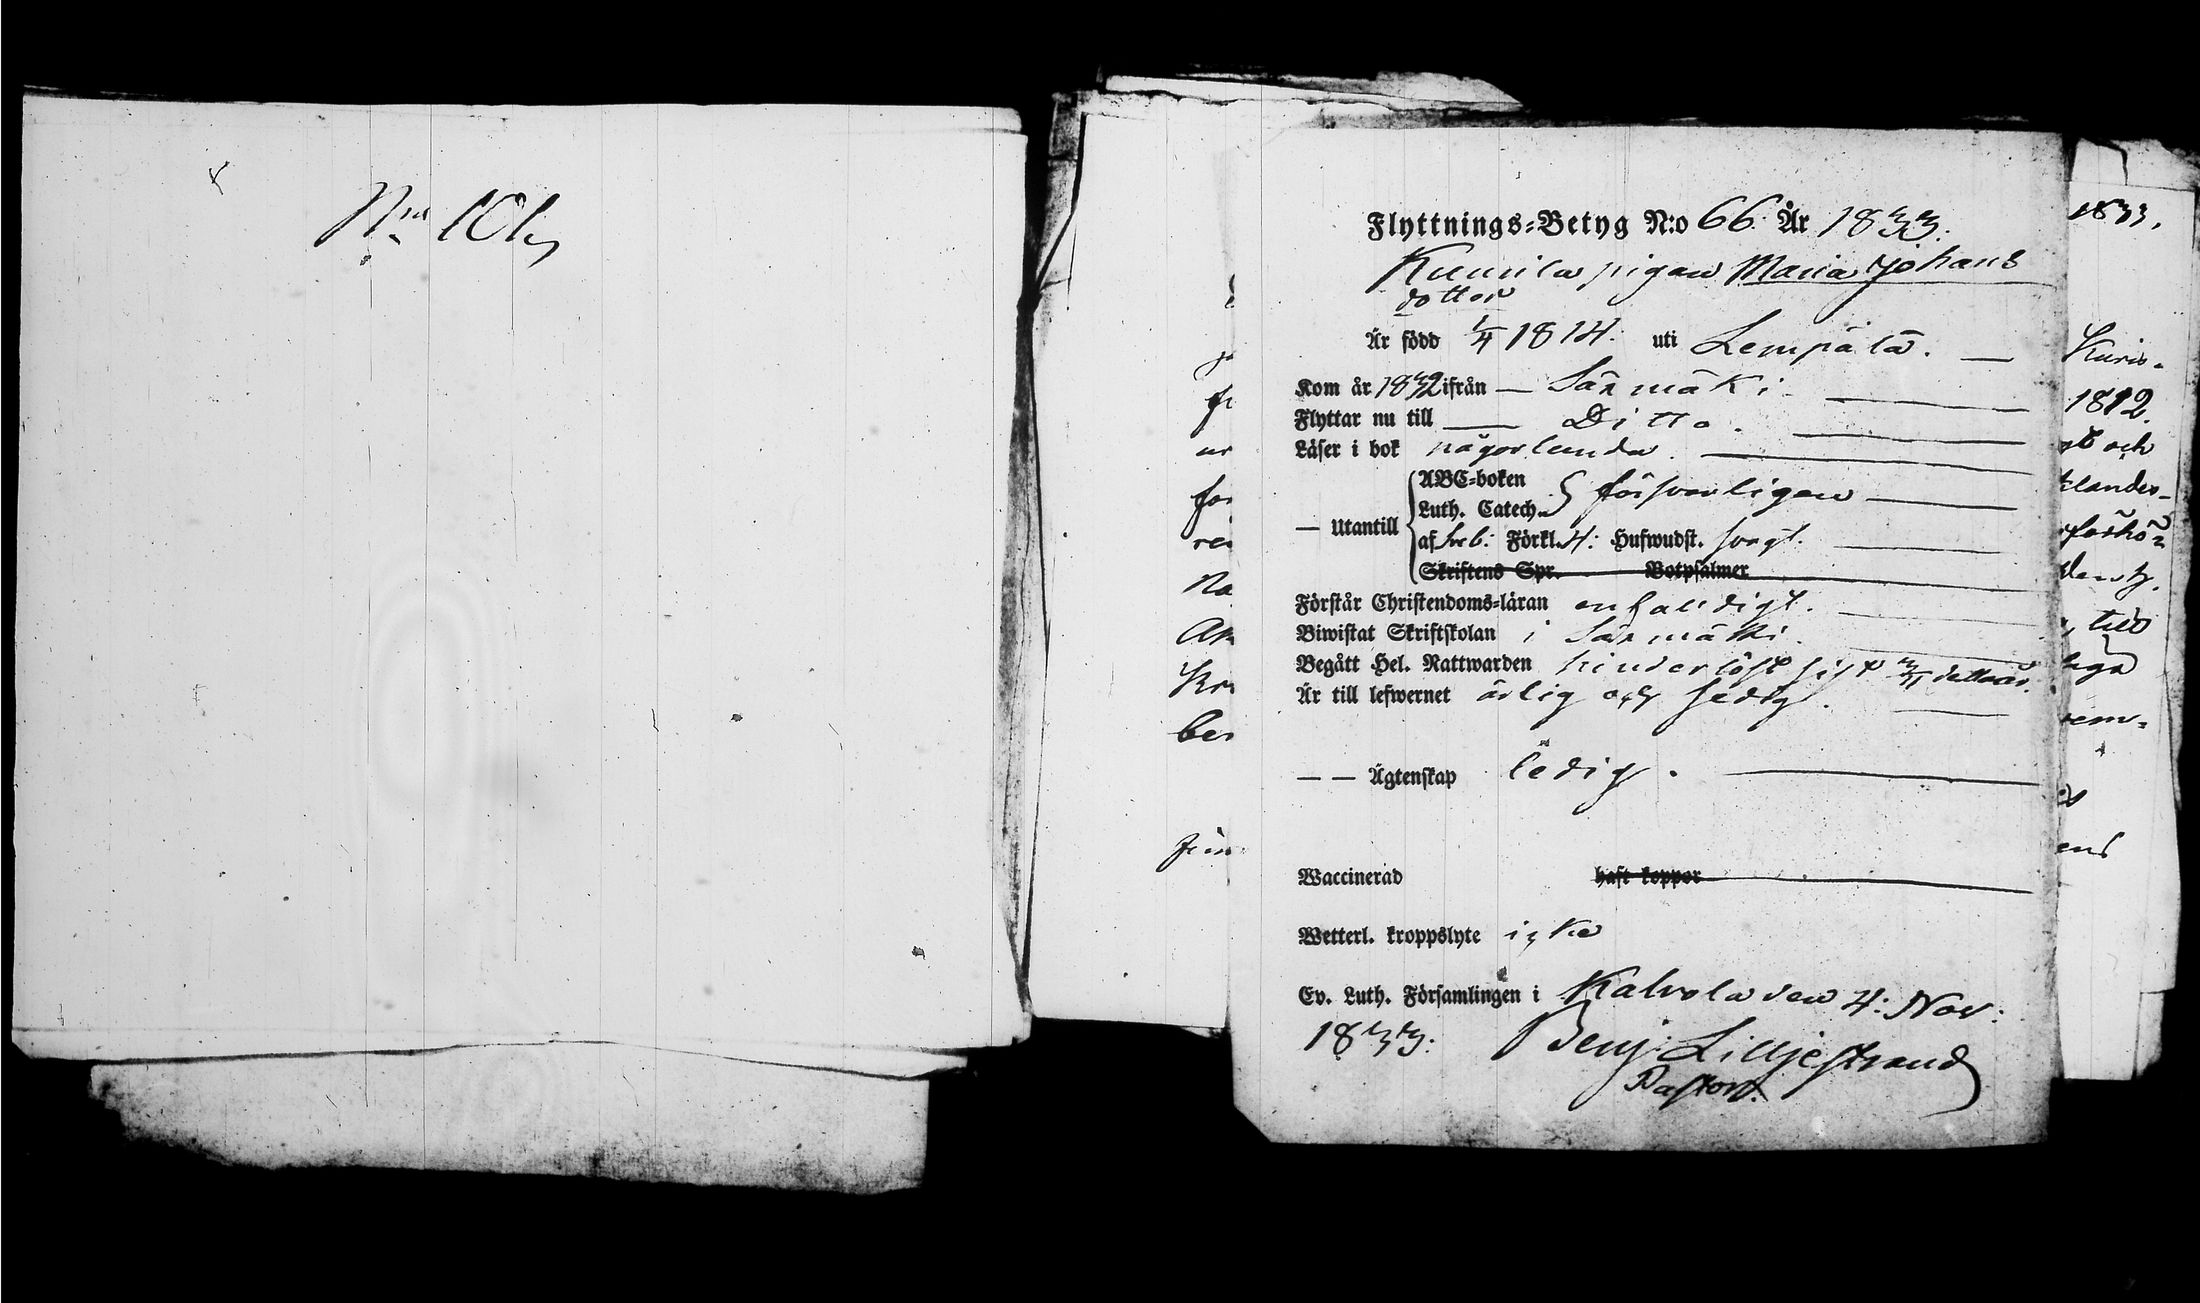 Nro 101,
Flyttnings-Betyg N:o 66. År 1833.
Kurila pigan Maria Johans
dotter
Är född 1/4 1814. uti Lempälä. —
Kom år 1832 ifrån — Säxmäki.
Flyttar nu till — Ditto.
Läser i bok någorlunda.
— Utantill
ABC-boken
Luth. Catech. } försvarligen
af Förkl. 4: Hufwudst. svagt.
Skriftens Spr. Botpsalmer
Förstår Christendoms-läran enfaldigt.
Biwistat Skriftskolan i Säxmäki.
Begått Hel. Nattwarden hinderlöst sist detta år.
Är till lefwernet ärlig och sedig.
— — Ägtenskap ledig.
Waccinerad haft koppor
Wetterl. kroppslyte icke
Ev. Luth. Församlingen i Kalvola den 4: Nov:
1833. Benj. Lilljestrand
Pastor.
1833.
1812.